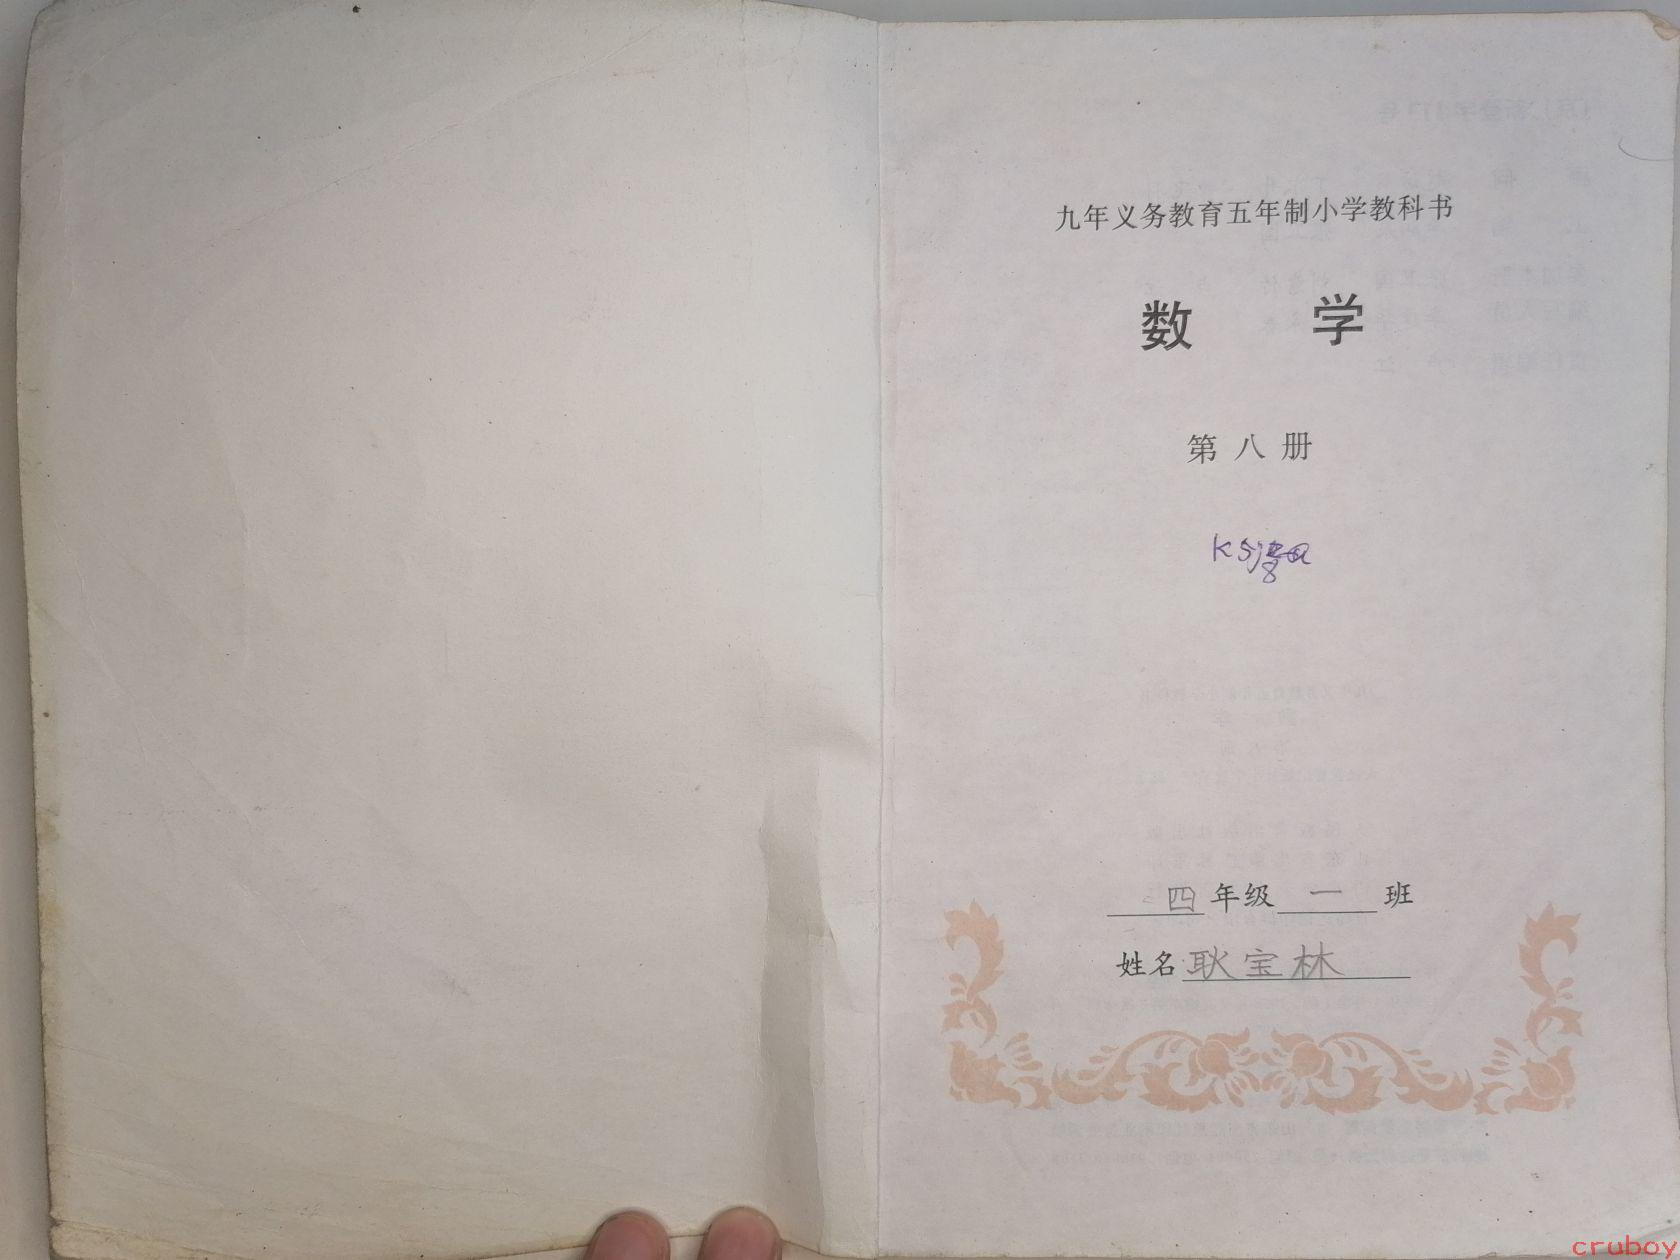 九年义务教育五年制小学教科书
数 学
第八册
四年级一班
姓名耿宝林
cruboy